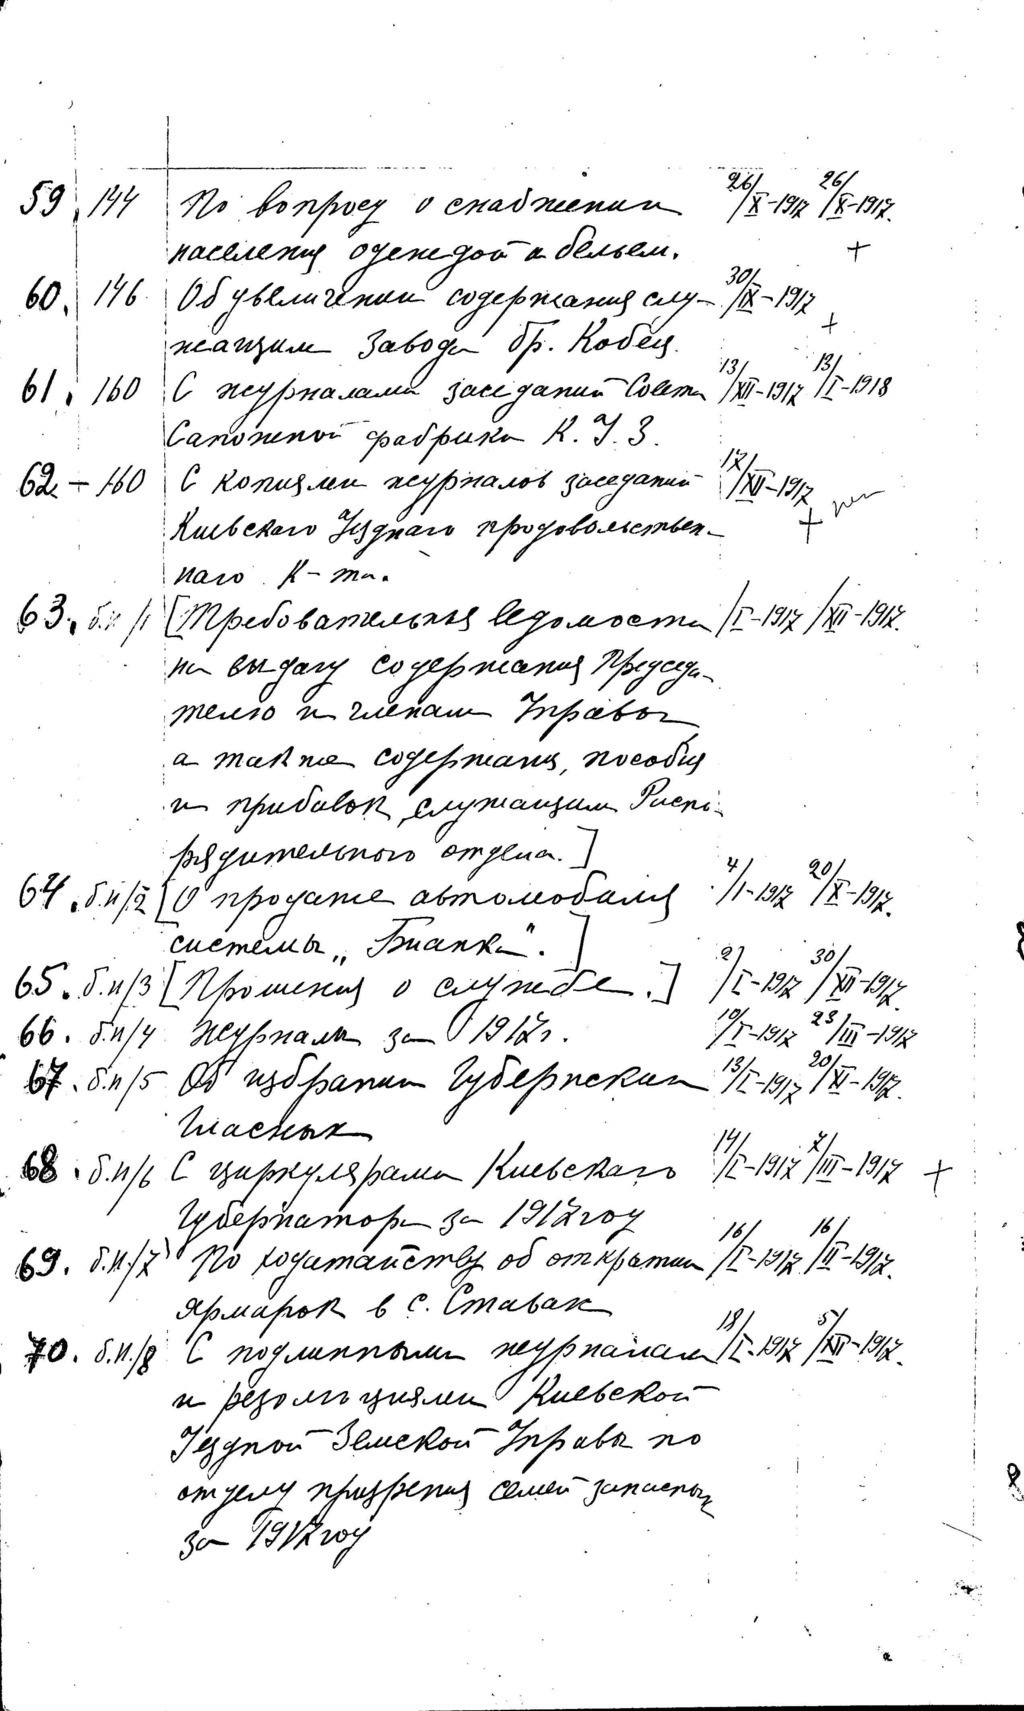 59. 144 По вопросу о снабжении 26/X-1917 26/X-1917.
населения одеждой и бельем. +
60. 146 Об увеличении содержания слу- 30/IX-1917
жащим Завода бр. Кобец. +
61. 160 С журналами заседаний Совета 13/XII-1917 13/I-1918
Сапожной фабрики К. У. З.
62 - 160 С копиями журналов заседаний 12/XII-1917
Киевскаго Уезднаго продовольствен- +
наго К-та.
63. б.н/1 [Требовательныя Ведомости /I-1917 /XII-1917.
на выдачу содержания Председа-
телю и членам Управы
а также содержания, пособия
и прибавок служащим Распо-
рядительного отдела.]
64. б.н/2 [О продаже автомобиля 4/I-1917 20/X-1917.
системы „Бианка".]
65. б.н/3 [Прошения о службе.] 2/I-1917 30/XII-1917
66. б.н/4 Журналы за 1917г. 10/I-1917 23/III-1917
67. б.н/5 Об избрании Губернских 13/I-1917 20/XI-1917.
Гласных
68. б.н/6 С циркулярами Киевскаго 14/I-1917 7/III-1917 +
Губернатора за 1917 год
69. б.н./7 По ходатайству об открытии 16/I-1917 16/II-1917.
ярмарок в с. Ставах
70. б.н./8 С подлинными журналами 18/I-1917 5/XII-1917.
и резолюциями Киевской
Уездной Земской Управы по
отделу призрения семей запасных
за 1917 год